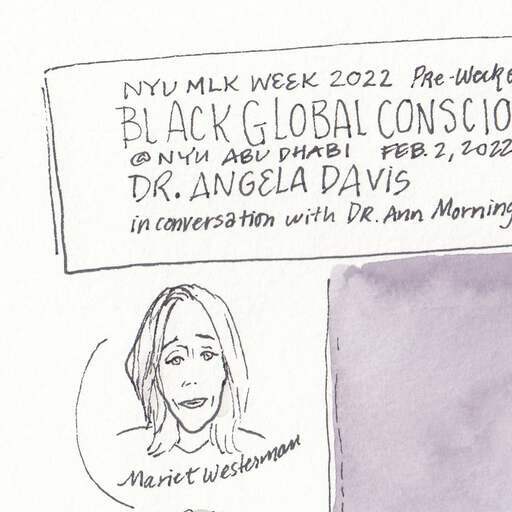 NYU MLK WEEK 2022 Pre-Week
BLACK GLOBAL CONSCIO
@ NYU ABU DHABI FEB. 2, 2022
DR. ANGELA DAVIS
in conversation with DR. Ann Morning
Mariet Westerman